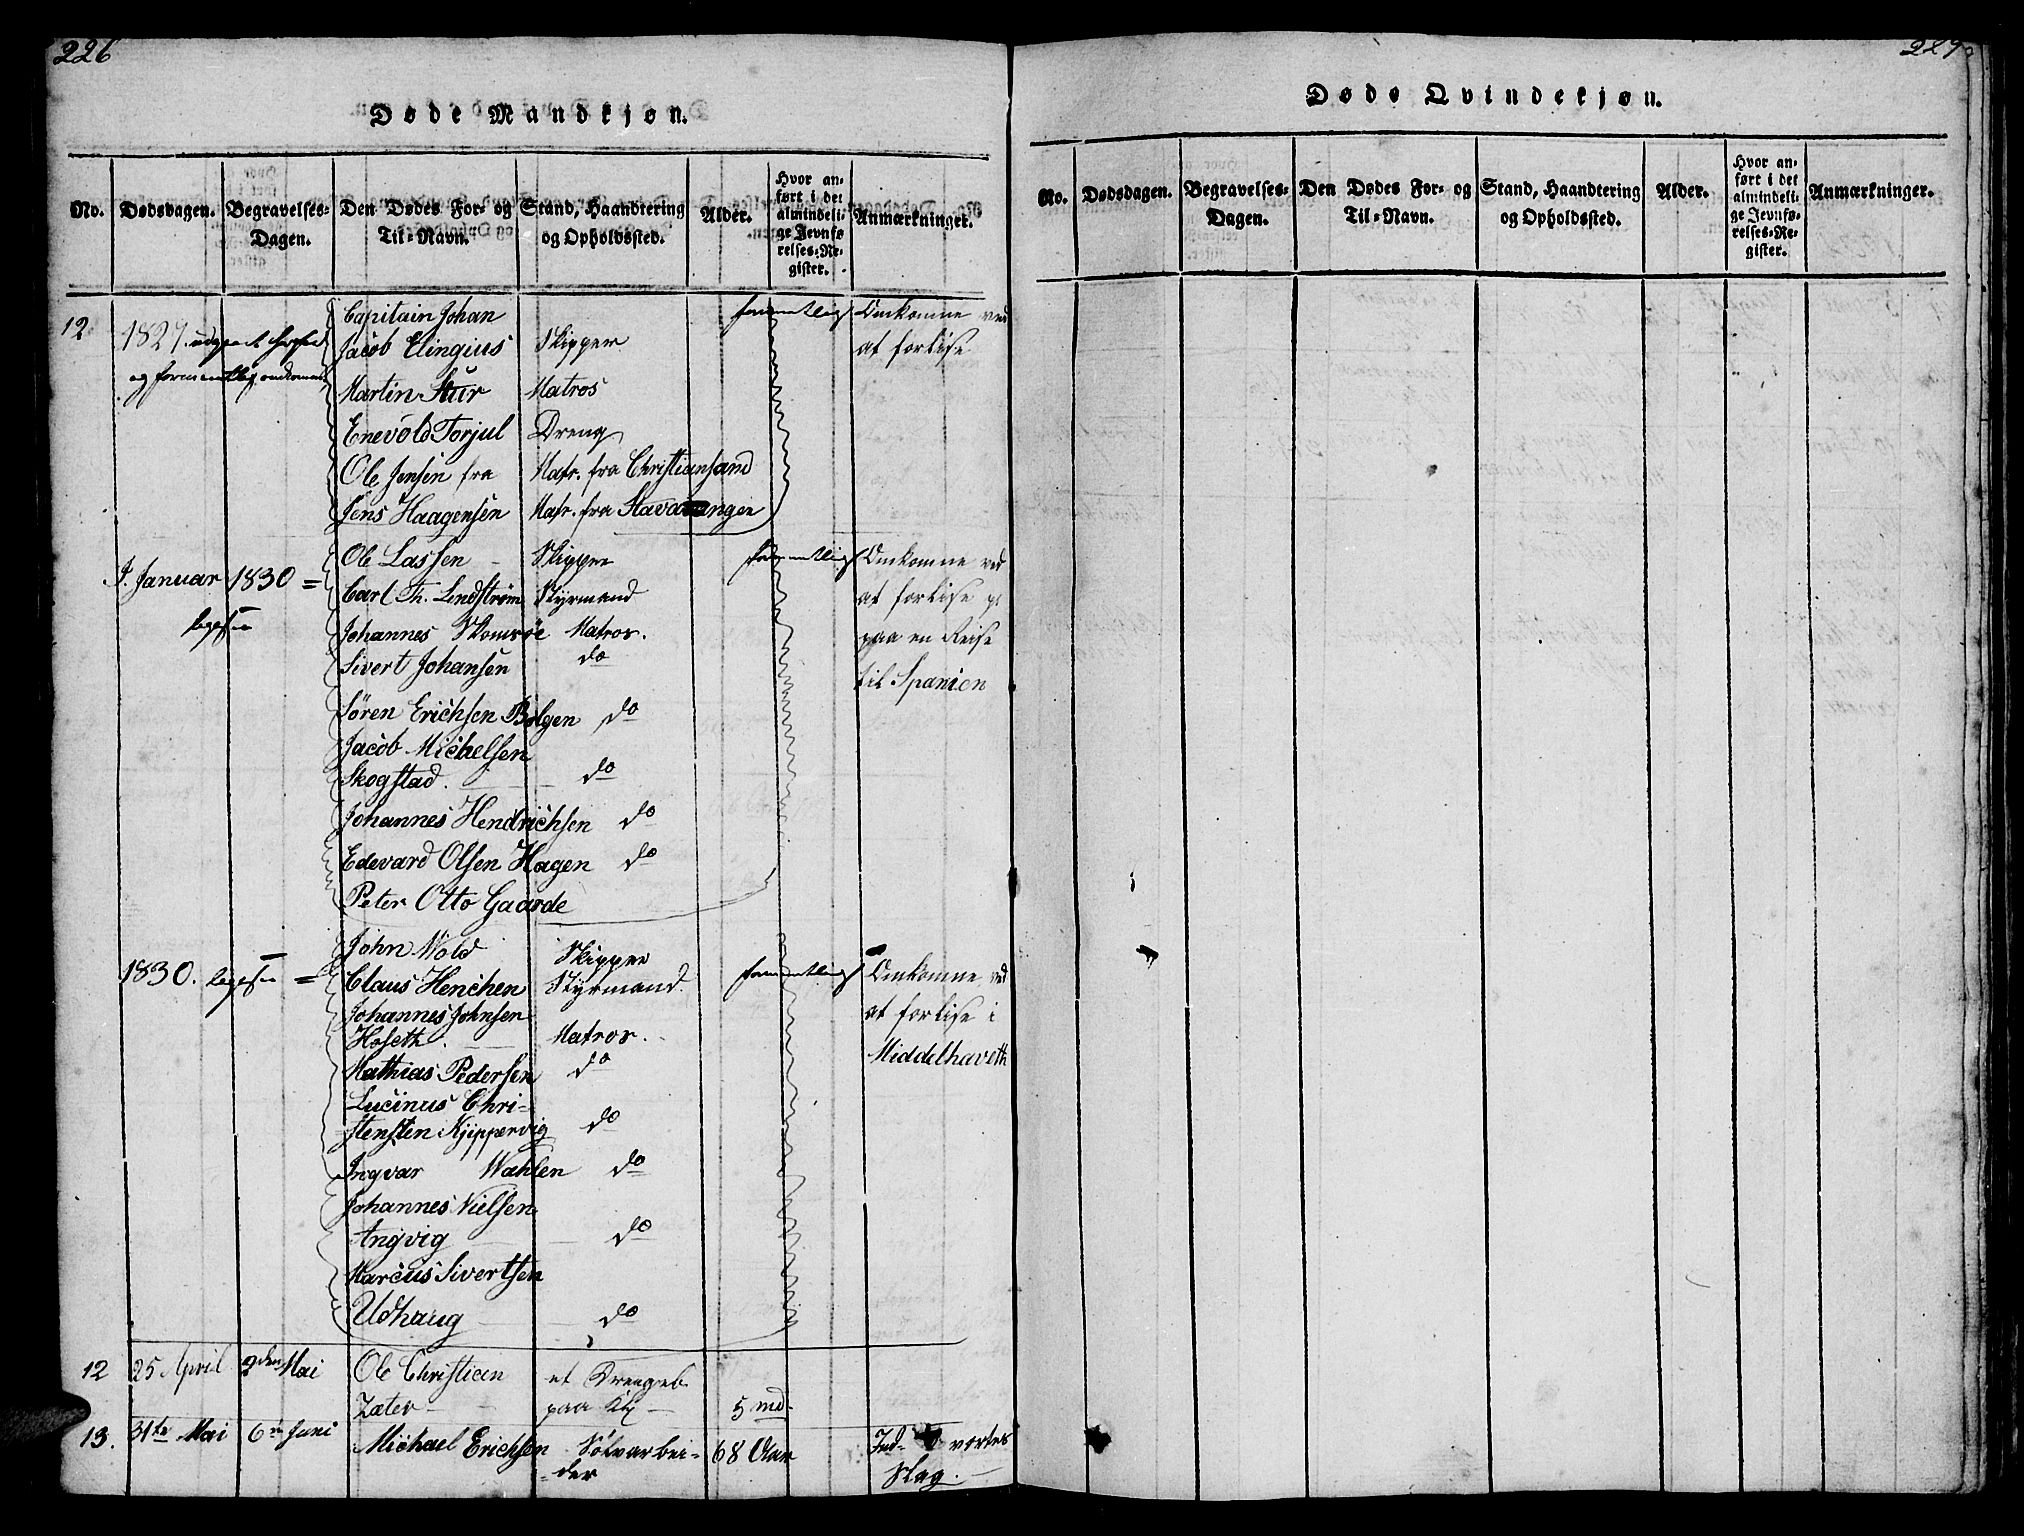 226
Døde Mandkjøn.
No. Dødsdagen. Begravelses-Dagen. Den Dødes For- og Til-Navn. Stand, Haandtering og Opholdssted. Alder. Hvor anført i det almindelige Jevnførelses-Register. Anmærkninger.
12. 1827. udgaaet
og formentlig omkommen
Capitain Johan
Jacob Elingius Skipper
Martin Stur Matros
Enevold Torjul Dreng
Ole Jensen fra Matr. fra Christiansand
Jens Haagensen Matr. fra Stavanger
formentlig Omkomne ved
at forlise
I Januar 1830 =
ligesaa
Ole Lassen - Skipper
Carl Th. Lindstrøm Styrmand
Johannes Skomsøe Matros.
Sivert Johansen do
Søren Erichsen Bolgen do
Jacob Michelsen
Skogstad. do
Johannes Hendrichsen do
Edevard Olsen Hagen do
Peter Otto Gaarde
formentlig Omkomne ved
at forlise p
paa en Reise
til Spanien
1830. ligesaa =
John Wold Skipper
Claus Henchen Styrmand.
Johannes Johnsen
Hoseth. Matros.
Mathias Pedersen do
Lucinus Chri-
stensten Kjippervig do
Ingvar Wahlen do
Johannes Nielsen
Angvig do
Marcus Sivertsen
Udhaug do
formentlig Omkomne ved
at forlise i
Middelhaveth
12 25 April 2den Mai Ole Christian et Drengeb.
Zæter paa 5 md.
13. 31te Mai 6te Juni Michael Erichsen Sølvarbei-
der 68 Aar Ind- vortes
Slag.
227
Døde Qvindekjøn.
No. Dødsdagen. Begravelses-Dagen. Den Dødes For- og Til-Navn. Stand, Haandtering og Opholdssted. Alder. Hvor anført i det almindelige Jevnførelses-Register. Anmærkninger.